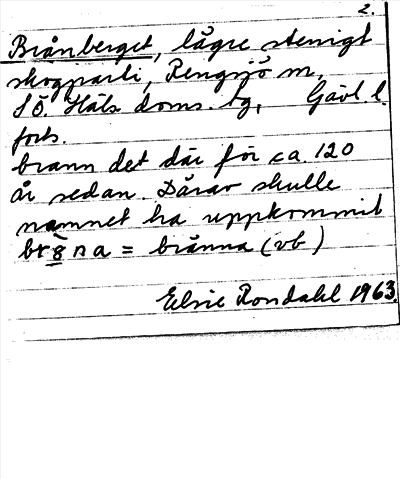 2.
Brånberget, lägre stenigt
skogparti, Rengsjö sn,
Sö. Häls. doms. tg, Gävl. l.
forts.
brann det där för ca. 120
år sedan. Därav skulle
namnet ha uppkommit
br8̀na = bränna (vb)
Elsie Rondahl 1963.